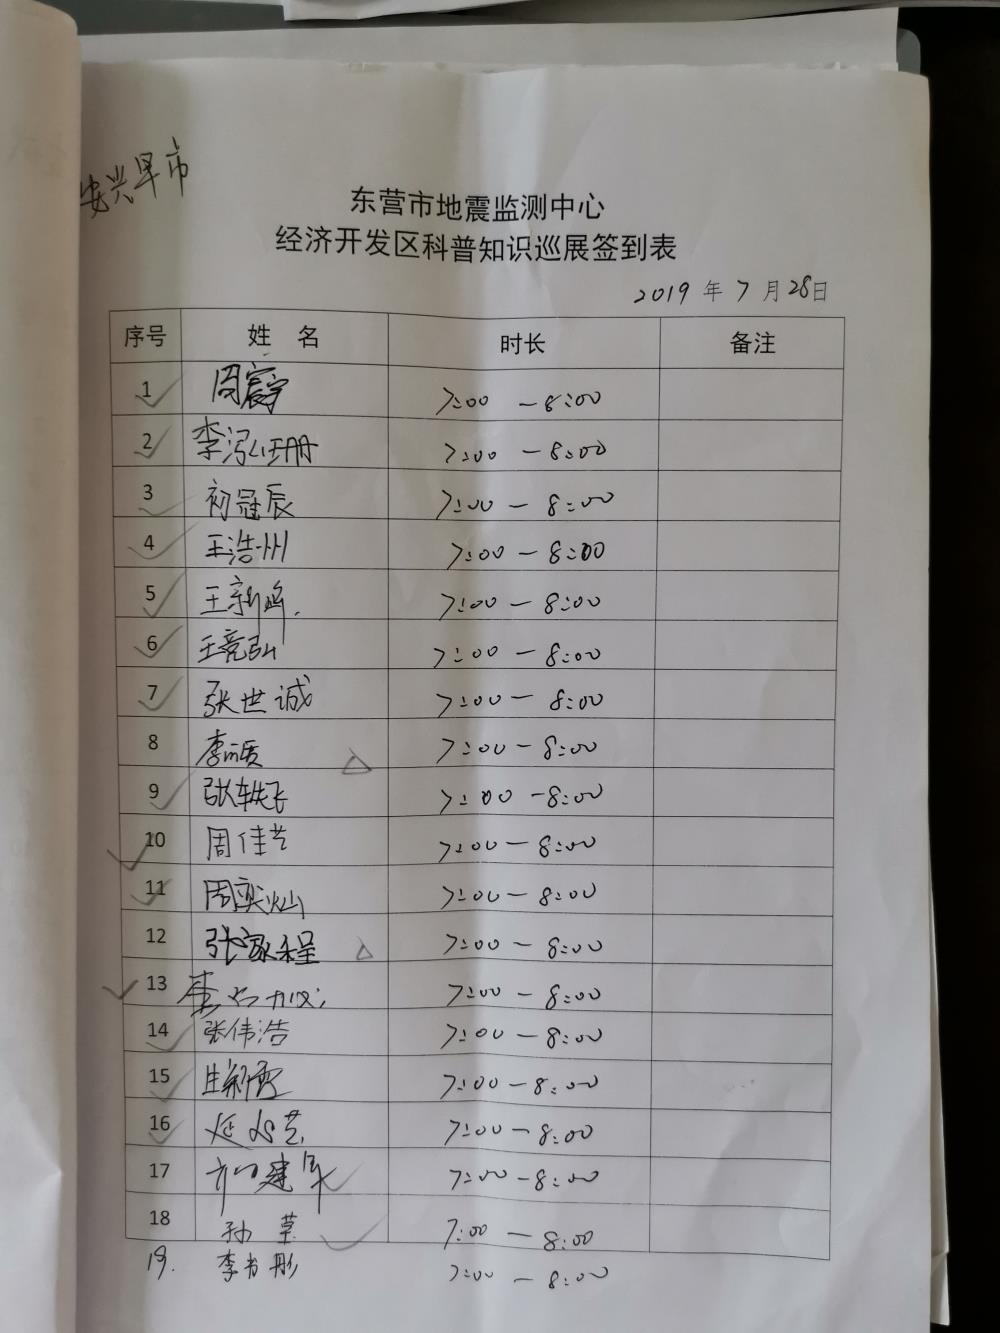 安兴早市
东营市地震监测中心
经济开发区科普知识巡展签到表
2019年7月28日
序号 姓名 时长 备注
1 周震宇 7:00-8:00
2 李泓珊 7:00-8:00
3 初冠辰 7:00-8:00
4 王浩州 7:00-8:00
5 王新峰. 7:00-8:00
6 王亮弘 7:00-8:00
7 张世诚 7:00-8:00
8 李 7:00-8:00
9 张轶飞 7:00-8:00
10 周佳艺 7:00-8:00
11 周奕灿 7:00-8:00
12 张家程 7:00-8:00
13 李 7:00-8:00
14 张伟浩 7:00-8:00
15 7:00-8:00
16 延心艺 7:00-8:00
17 建军 7:00-8:00
18 孙 7:00-8:00
19. 李书彤 7:00-8:00